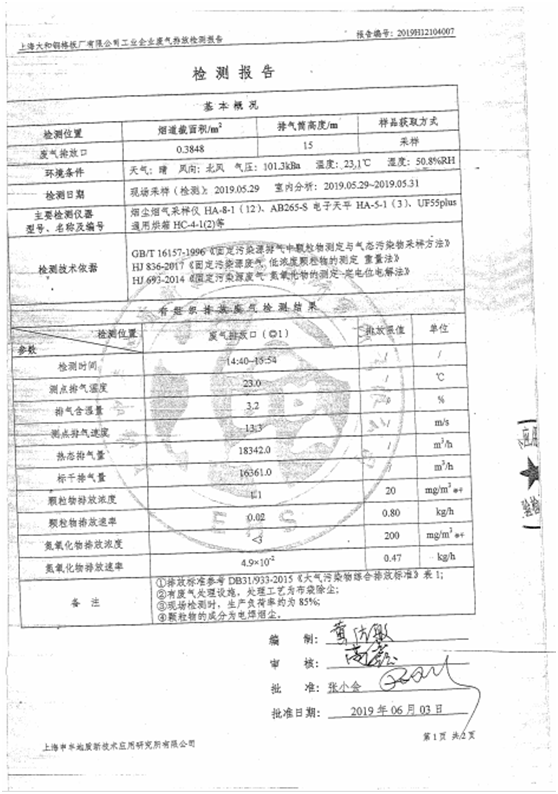 上海大和钢格板厂有限公司工业企业废气排放检测报告 报告编号：2019H12104007
检测报告
基本概况
检测位置 烟道截面积/m² 排气筒高度/m 样品获取方式
废气排放口 0.3848 15 采样
环境条件 天气：晴 风向：北风 气压：101.3kBa 温度：23.1℃ 湿度：50.8%RH
检测日期 现场采样（检测）：2019.05.29 室内分析：2019.05.29~2019.05.31
主要检测仪器 烟尘烟气采样仪 HA-8-1（12）、AB265-S 电子天平 HA-5-1（3）、UF55plus
型号、名称及编号 通用烘箱 HC-4-1(2)等
检测技术依据 GB/T 16157-1996《固定污染源排气中颗粒物测定与气态污染物采样方法》
HJ 836-2017《固定污染源废气 低浓度颗粒物的测定 重量法》
HJ 693-2014《固定污染源废气 氮氧化物的测定 定电位电解法》
有组织排放废气检测结果
检测位置 废气排放口（◎1） 排放限值 单位
参数
检测时间 14:40~15:54 / /
测点排气温度 23.0 / ℃
排气含湿量 3.2 / %
测点排气速度 13.3 / m/s
热态排气量 18342.0 / m³/h
标干排气量 16361.0 / m³/h
颗粒物排放浓度 1.1 20 mg/m³
颗粒物排放速率 0.02 0.80 kg/h
氮氧化物排放浓度 <3 200 mg/m³
氮氧化物排放速率 4.9×10⁻² 0.47 kg/h
备 注 ①排放标准参考 DB31/933-2015《大气污染物综合排放标准》表 1；
②有废气处理设施，处理工艺为布袋除尘；
③现场检测时，生产负荷率约为 85%；
④颗粒物的成分为电焊烟尘。
编 制：
审 核：
批 准：张小会
批准日期： 2019 年 06 月 03 日
上海申丰地质新技术应用研究所有限公司 第 1 页 共 2 页
EPS